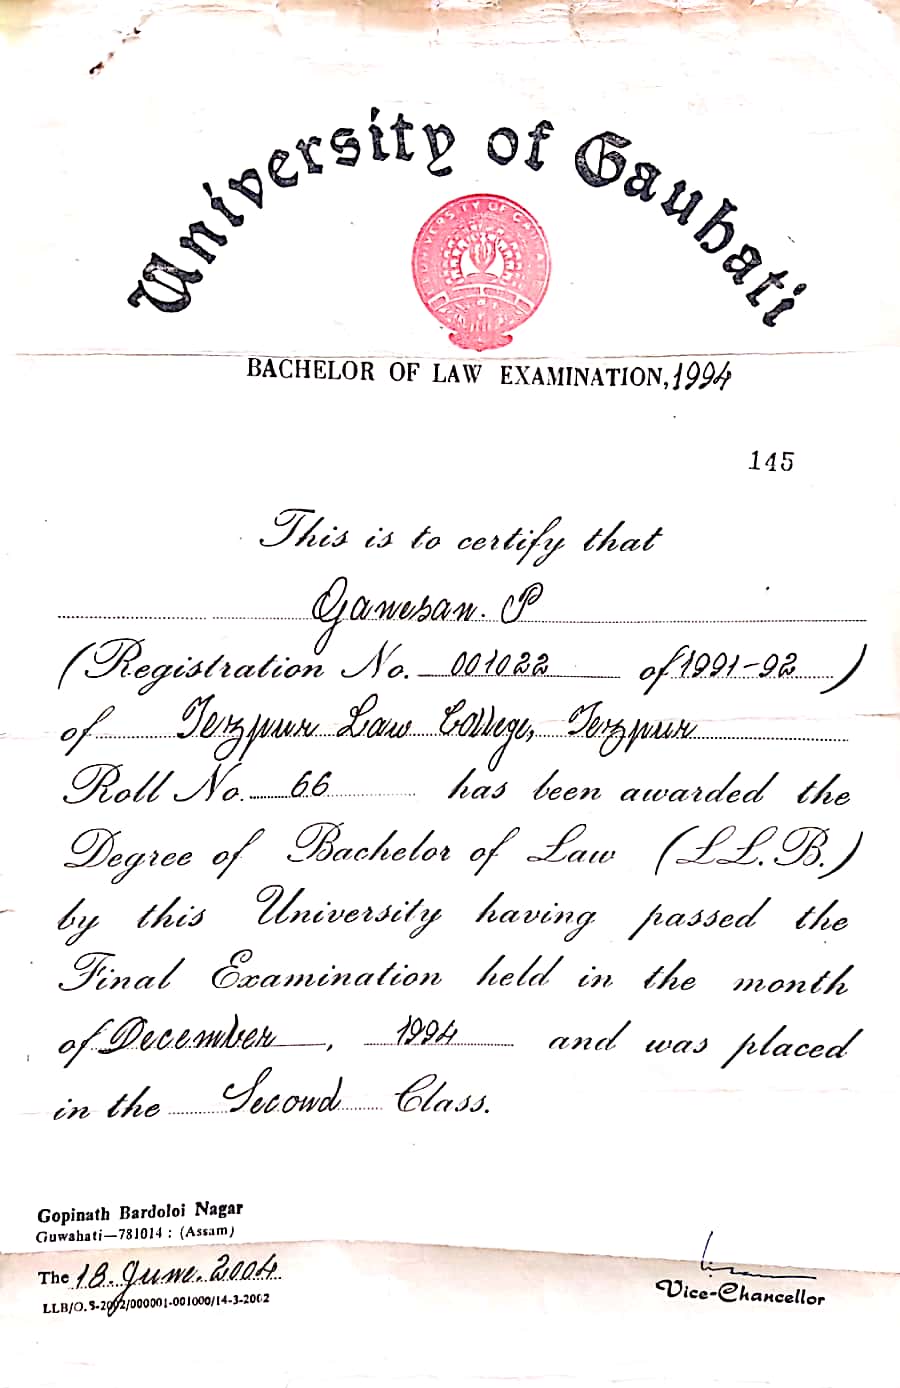 University of Gauhati
UNIVERSITY OF GAUHATI
BACHELOR OF LAW EXAMINATION, 1994
145
This is to certify that
Ganesan. P
(Registration No. 001022 of 1991-92)
of Tezpur Law College, Tezpur
Roll No. 66 has been awarded the
Degree of Bachelor of Law (LL.B.)
by this University having passed the
Final Examination held in the month
of December, 1994 and was placed
in the Second Class.
Gopinath Bardoloi Nagar
Guwahati—781014 : (Assam)
The 18. June. 2004
LLB/O. S-2002/000001-001000/14-3-2002
Vice-Chancellor